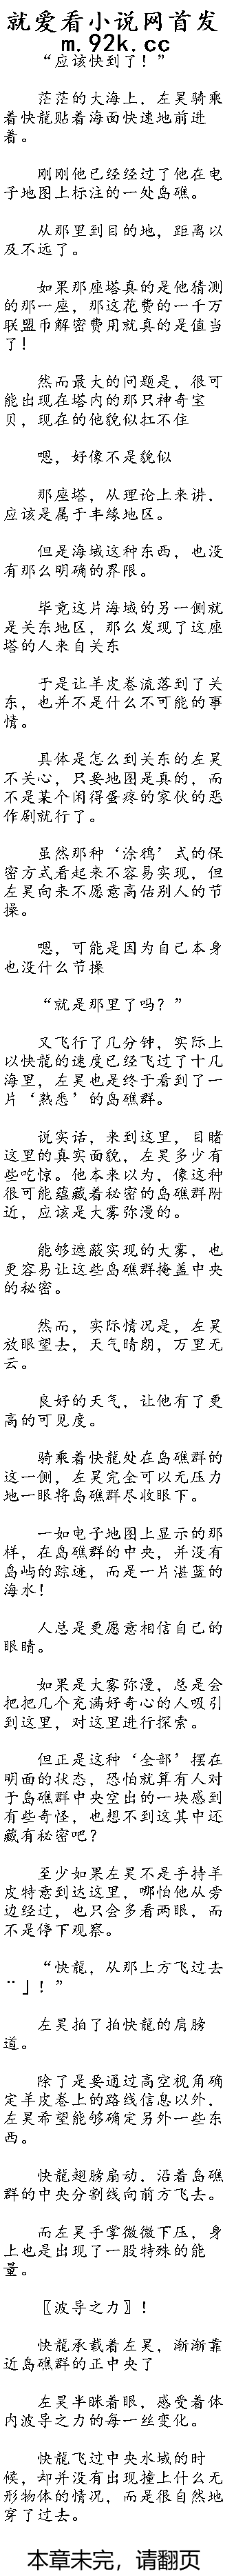 就爱看小说网首发
m.92k.cc
“应该快到了！”
茫茫的大海上，左昊骑乘
着快龍贴着海面快速地前进
着。
刚刚他已经经过了他在电
子地图上标注的一处岛礁。
从那里到目的地，距离以
及不远了。
如果那座塔真的是他猜测
的那一座，那这花费的一千万
联盟币解密费用就真的是值当
了！
然而最大的问题是，很可
能出现在塔内的那只神奇宝
贝，现在的他貌似扛不住
嗯，好像不是貌似
那座塔，从理论上来讲，
应该是属于丰缘地区。
但是海域这种东西，也没
有那么明确的界限。
毕竟这片海域的另一侧就
是关东地区，那么发现了这座
塔的人来自关东
于是让羊皮卷流落到了关
东，也并不是什么不可能的事
情。
具体是怎么到关东的左昊
不关心，只要地图是真的，而
不是某个闲得蛋疼的家伙的恶
作剧就行了。
虽然那种‘涂鸦’式的保
密方式看起来不容易实现，但
左昊向来不愿意高估别人的节
操。
嗯，可能是因为自己本身
也没什么节操
“就是那里了吗？”
又飞行了几分钟，实际上
以快龍的速度已经飞过了十几
海里，左昊也是终于看到了一
片‘熟悉’的岛礁群。
说实话，来到这里，目睹
这里的真实面貌，左昊多少有
些吃惊。他本来以为，像这种
很可能蕴藏着秘密的岛礁群附
近，应该是大雾弥漫的。
能够遮蔽实现的大雾，也
更容易让这些岛礁群掩盖中央
的秘密。
然而，实际情况是，左昊
放眼望去，天气晴朗，万里无
云。
良好的天气，让他有了更
高的可见度。
骑乘着快龍处在岛礁群的
这一侧，左昊完全可以无压力
地一眼将岛礁群尽收眼下。
一如电子地图上显示的那
样，在岛礁群的中央，并没有
岛屿的踪迹，而是一片湛蓝的
海水！
人总是更愿意相信自己的
眼睛。
如果是大雾弥漫，总是会
把把几个充满好奇心的人吸引
到这里，对这里进行探索。
但正是这种‘全部’摆在
明面的状态，恐怕就算有人对
于岛礁群中央空出的一块感到
有些奇怪，也想不到这其中还
藏有秘密吧？
至少如果左昊不是手持羊
皮特意到达这里，哪怕他从旁
边经过，也只会多看两眼，而
不是停下观察。
“快龍，从那上方飞过去
¨」！”
左昊拍了拍快龍的肩膀
道。
除了是要通过高空视角确
定羊皮卷上的路线信息以外，
左昊希望能够确定另外一些东
西。
快龍翅膀扇动，沿着岛礁
群的中央分割线向前方飞去。
而左昊手掌微微下压，身
上也是出现了一股特殊的能
量。
〖波导之力〗！
快龍承载着左昊，渐渐靠
近岛礁群的正中央了
左昊半眯着眼，感受着体
内波导之力的每一丝变化。
快龍飞过中央水域的时
候，却并没有出现撞上什么无
形物体的情况，而是很自然地
穿了过去。
本章未完，请翻页